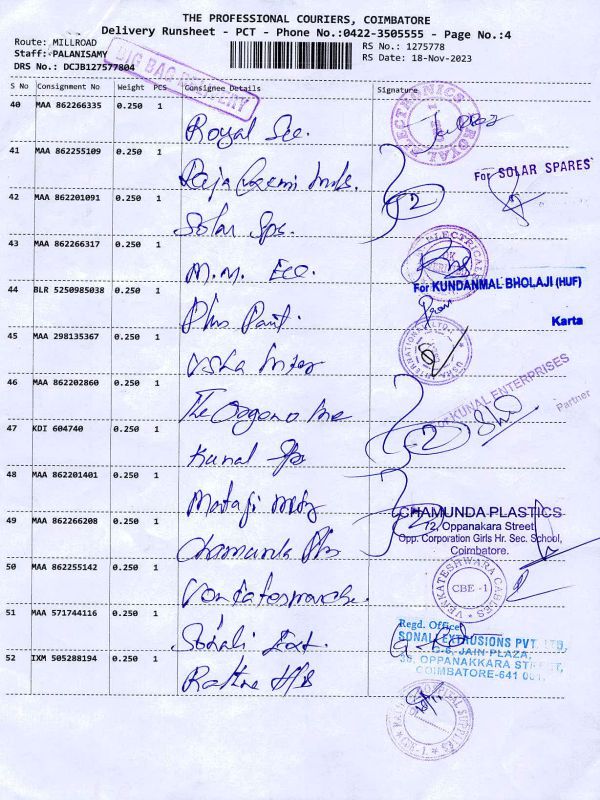 THE PROFESSIONAL COURIERS, COIMBATORE
Delivery Runsheet - PCT - Phone No.:0422-3505555 - Page No.:4
Route: MILLROAD
RS No.: 1275778
Staff: PALANISAMY
RS Date: 18-Nov-2023
DRS No.: DCJB127577804
BIG BAG DELIVERY
S No Consignment No Weight PCS Consignee Details Signature
40 MAA 862266335 0.250 1
Royal Ele.
ELECTRONICS ROYAL
41 MAA 862255109 0.250 1
Raja Laxmi Mds.
2
For SOLAR SPARES
42 MAA 862201091 0.250 1
Solar Sps.
43 MAA 862266317 0.250 1
M.M. Ele.
ELECTRICAL
For KUNDANMAL BHOLAJI (HUF)
44 BLR 5250985038 0.250 1
Karta
45 MAA 298135367 0.250 1
Usha Inter
USHA INTERNATIONAL LTD
46 MAA 862202860 0.250 1
The
For KUNAL ENTERPRISES
Partner
47 KDI 604740 0.250 1
Kunal
2
48 MAA 862201401 0.250 1
Mataji
2
CHAMUNDA PLASTICS
72, Oppanakara Street,
Opp. Corporation Girls Hr. Sec. School,
Coimbatore.
49 MAA 862266208 0.250 1
Chamunda Pls
50 MAA 862255142 0.250 1
Venkateshwara
VENKATESHWARA CABLES
CBE - 1
51 MAA 571744116 0.250 1
Sonali Ext.
Regd. Office:
SONALI EXTRUSIONS PVT. LTD.,
JAIN PLAZA,
OPPANAKKARA STREET,
COIMBATORE-641 001.
52 IXM 505288194 0.250 1
Rathna H/S